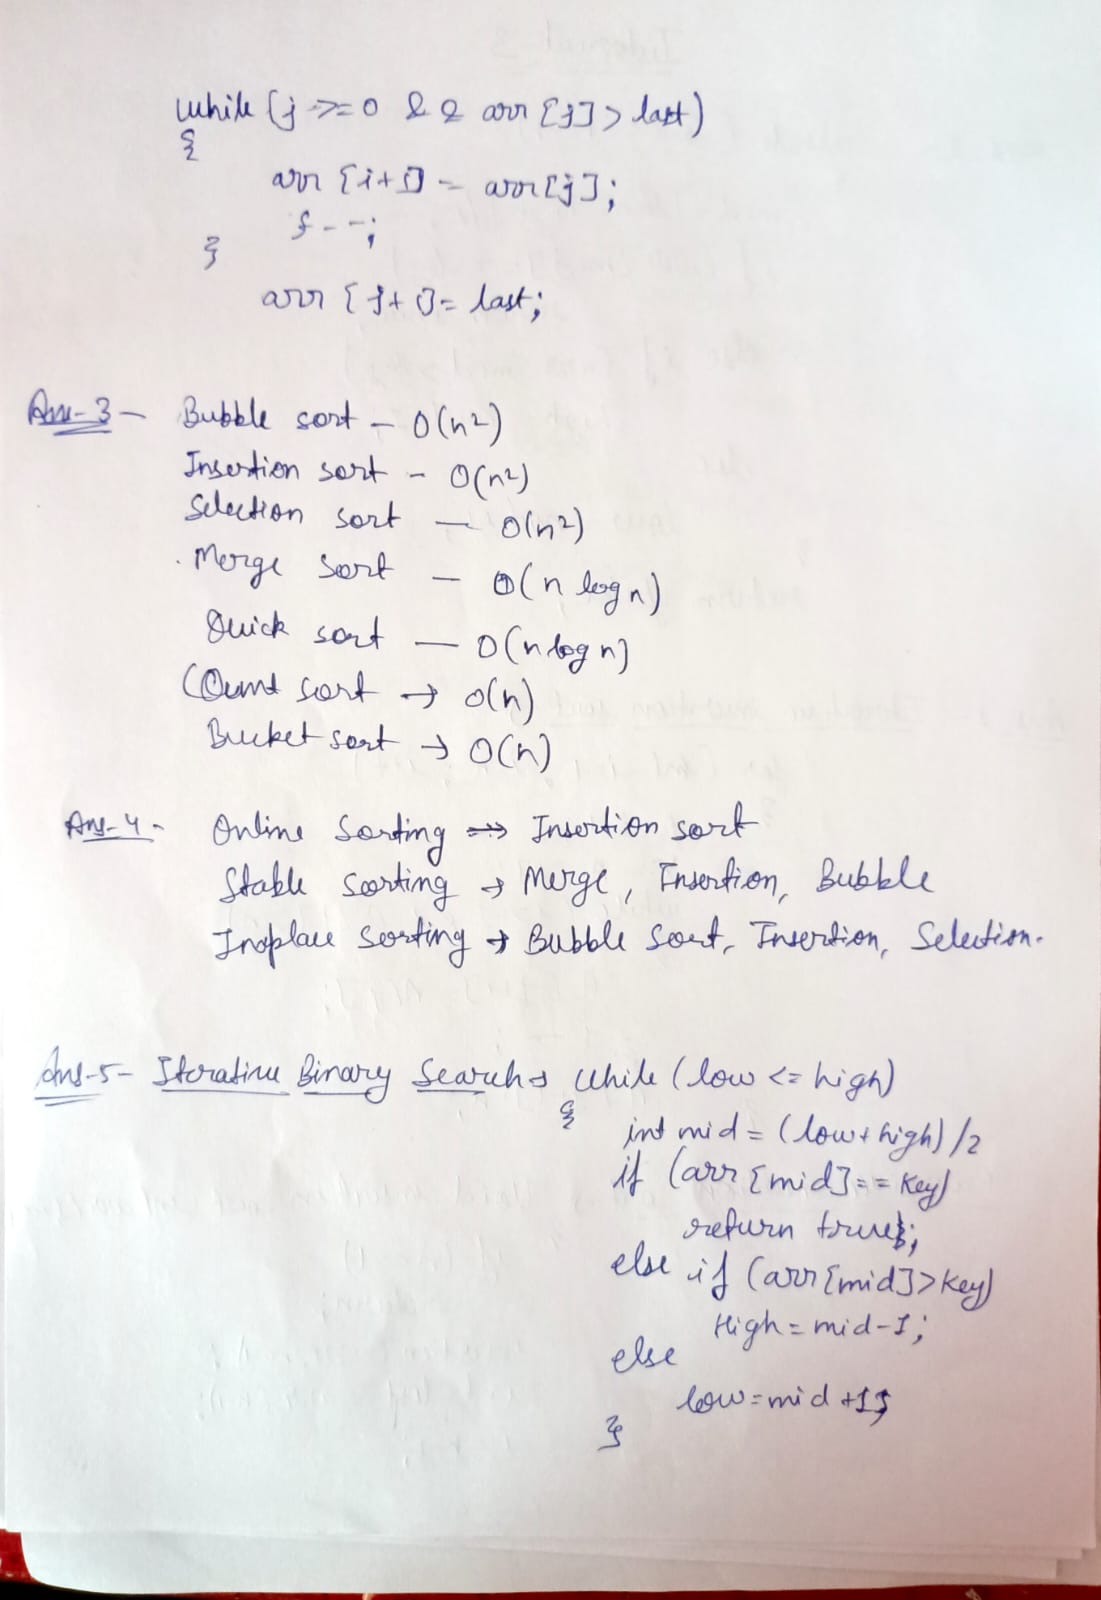 while (j >= 0 && arr [j] > last)
{
arr [i+1] = arr[j];
j--;
}
arr [j+1] = last;
Ans-3 - Bubble sort - O(n²)
Insertion sort - O(n²)
Selection sort - O(n²)
Merge sort - O(n log n)
Quick sort - O(n log n)
Count sort → O(n)
Bucket sort → O(n)
Ans-4 - Online Sorting → Insertion sort
Stable sorting → Merge, Insertion, Bubble
Inplace sorting → Bubble sort, Insertion, Selection.
Ans-5- Iterative Binary Search → while (low <= high)
{
int mid = (low+high)/2
if (arr [mid] == Key)
return true;
else if (arr[mid] > Key)
High = mid-1;
else
low = mid +1;
}